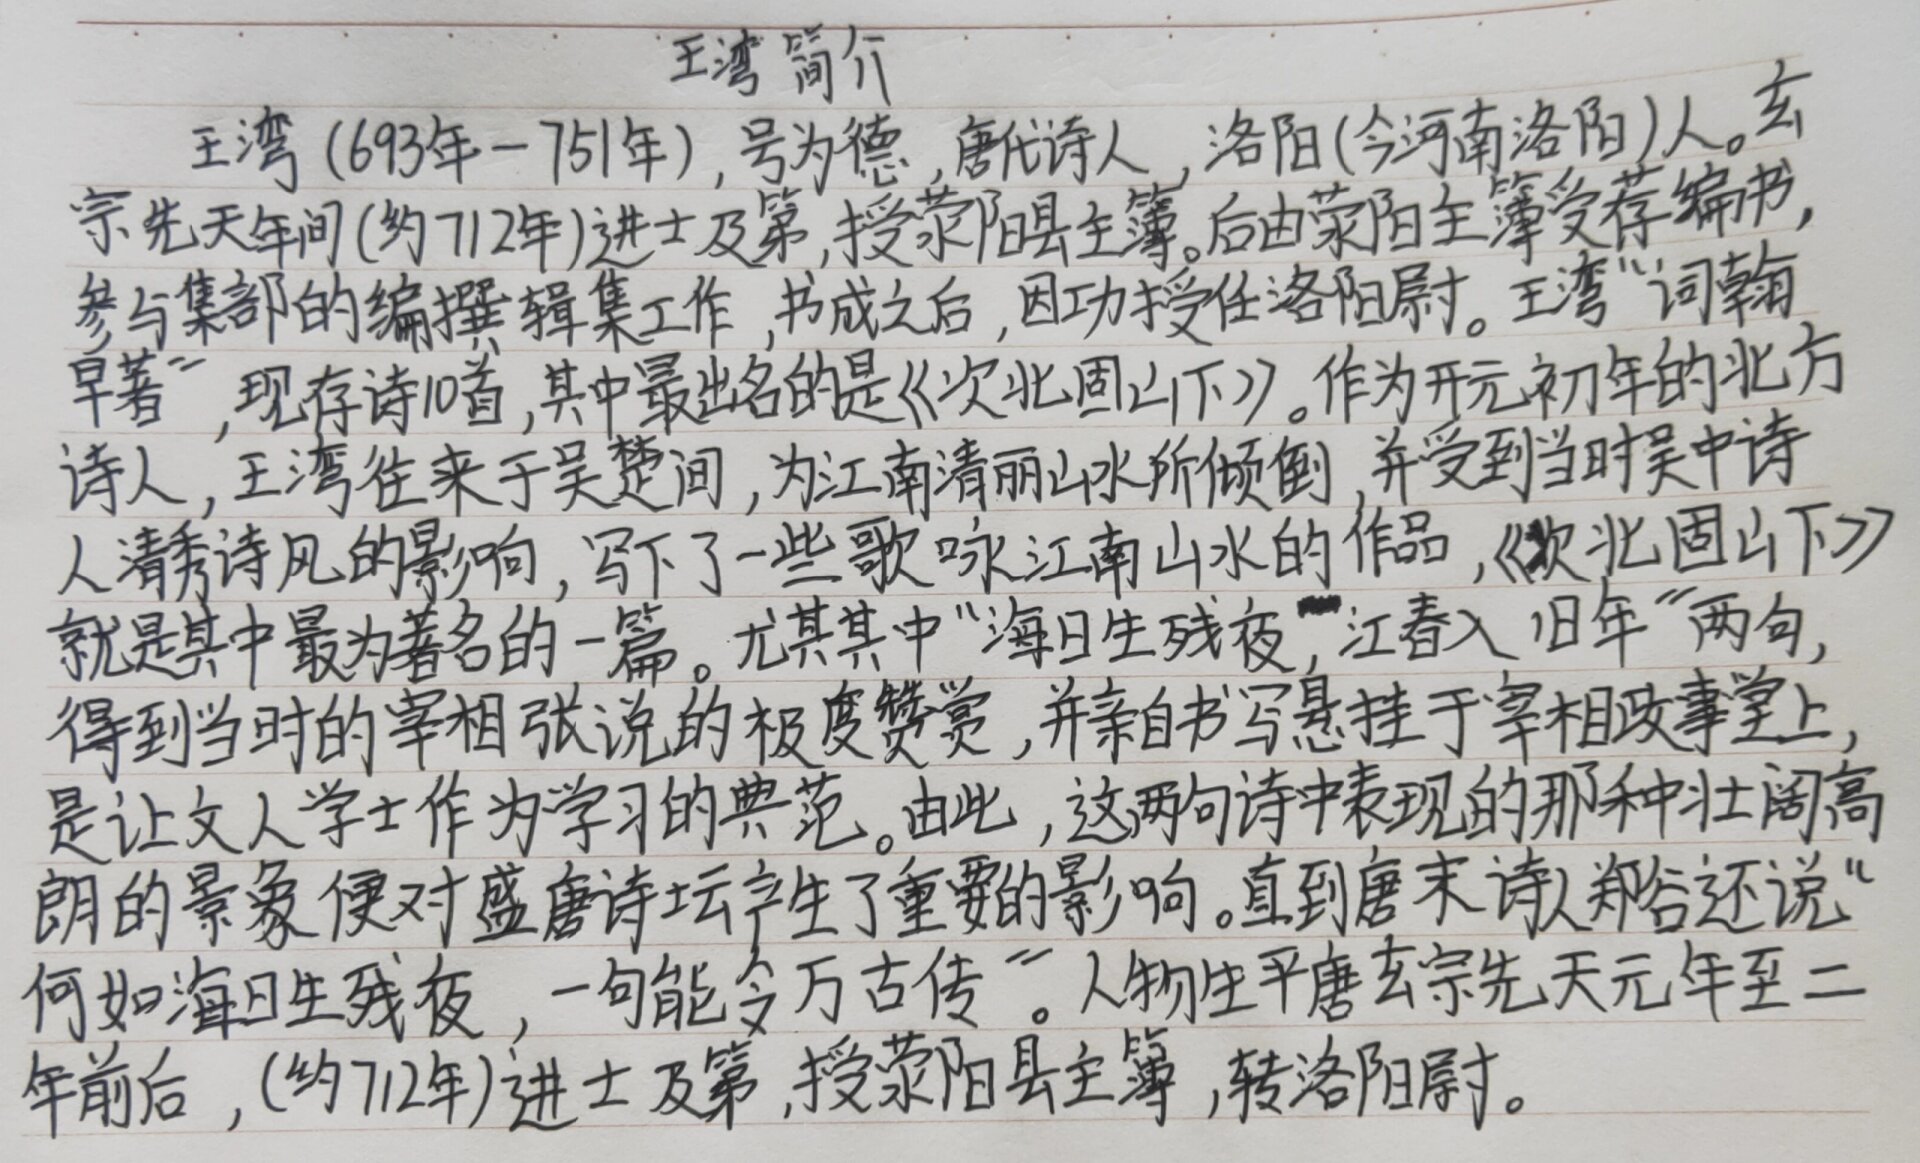 王湾简介
王湾(693年-751年),号为德,唐代诗人,洛阳(今河南洛阳)人。玄
宗先天年间(约712年)进士及第,授荥阳县主簿。后由荥阳主簿受荐编书,
参与集部的编撰辑集工作,书成之后,因功授任洛阳尉。王湾“词翰
早著”,现存诗10首,其中最出名的是《次北固山下》。作为开元初年的北方
诗人,王湾往来于吴楚间,为江南清丽山水所倾倒,并受到当时吴中诗
人清秀诗风的影响,写下了一些歌咏江南山水的作品,《次北固山下》
就是其中最为著名的一篇。尤其其中“海日生残夜,江春入旧年”两句,
得到当时的宰相张说的极度赞赏,并亲自书写悬挂于宰相政事堂上,
是让文人学士作为学习的典范。由此,这两句诗中表现的那种壮阔高
朗的景象便对盛唐诗坛产生了重要的影响。直到唐末诗人郑谷还说“
何如海日生残夜,一句能令万古传”。人物生平唐玄宗先天元年至二
年前后,(约712年)进士及第,授荥阳县主簿,转洛阳尉。